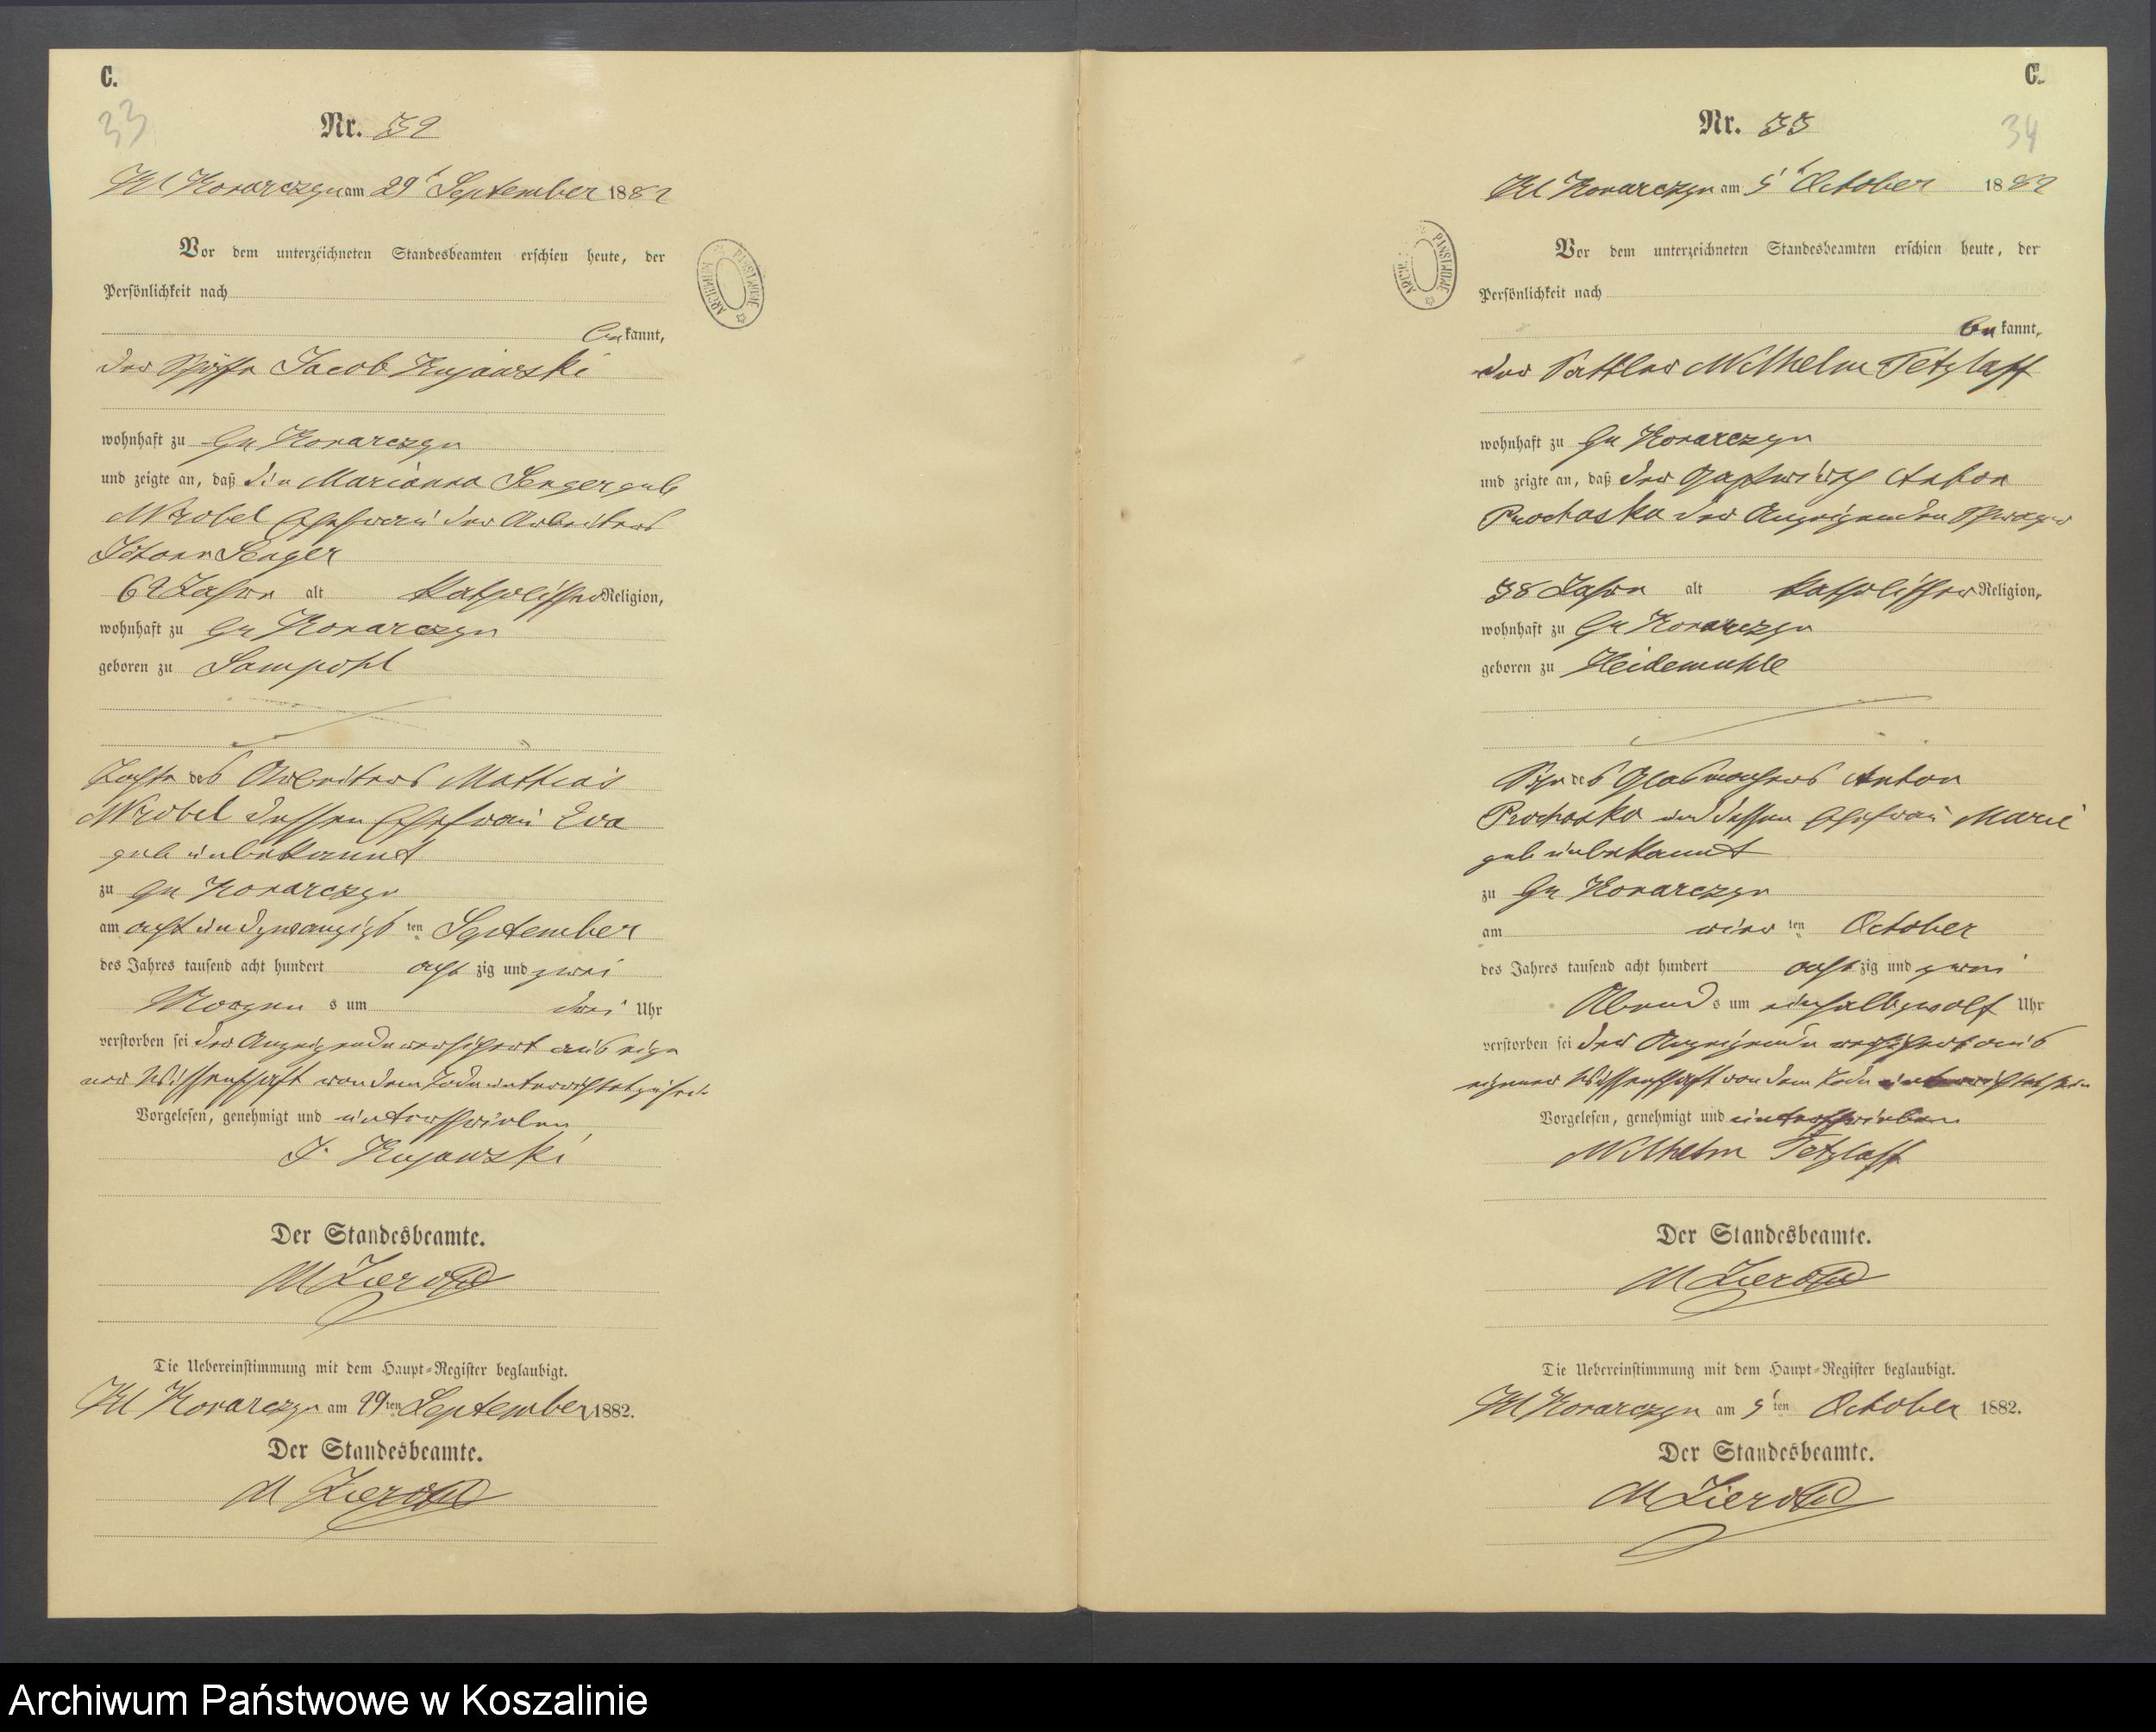 C.
33
Nr. 32
Kl Konarczyn am 29t September 1882
Vor dem unterzeichneten Standesbeamten erschien heute, der
Persönlichkeit nach
be kannt,
der Schöffe Jacob Kujawski
wohnhaft zu Gr Konarczyn
und zeigte an, daß die Marianna Senger geb
Wrobel Ehefrau des Arbeiters
Johann Senger
62 Jahre alt katholischer Religion,
wohnhaft zu Gr Konarczyn
geboren zu Sampohl
Tochter des Arbeiters Mathias
Wrobel dessen Ehefrau Eva
geb unbekannt
zu Gr Konarczyn
am acht und zwanzigs ten September
des Jahres tausend acht hundert acht zig und zwei
Morgen s um drei Uhr
verstorben sei der Anzeigende versichert aus eige
ner Wissenschaft von dem Tode unterrichtet zu sein
Vorgelesen, genehmigt und unterschrieben
J. Kujawski
Der Standesbeamte.
M Zierold
Die Uebereinstimmung mit dem Haupt-Register beglaubigt.
Kl Konarczyn am 29ten September 1882.
Der Standesbeamte.
M Zierold
ARCHIWUM PAŃSTWOWE
C.
34
Nr. 33
Kl Konarczyn am 5t October 1882
Vor dem unterzeichneten Standesbeamten erschien heute, der
Persönlichkeit nach
be kannt,
der Sattler Wilhelm Tetzlaff
wohnhaft zu Gr Konarczyn
und zeigte an, daß der Gastwirth Anton
Prochaska des Anzeigenden Schwager
38 Jahre alt katholischer Religion,
wohnhaft zu Gr Konarczyn
geboren zu Heidemuhle
Sohn des Glasmachers Anton
Prochaska und dessen Ehefrau Marie
geb unbekannt
zu Gr Konarczyn
am vier ten October
des Jahres tausend acht hundert acht zig und zwei
Abend s um einhalbzwolf Uhr
verstorben sei der Anzeigende versichert aus
eigener Wissenschaft von dem Tode unterrichtet sein
Vorgelesen, genehmigt und unterschrieben
Wilhelm Tetzlaff
Der Standesbeamte.
M Zierold
Die Uebereinstimmung mit dem Haupt-Register beglaubigt.
Kl Konarczyn am 5ten October 1882.
Der Standesbeamte.
M Zierold
Archiwum Państwowe w Koszalinie